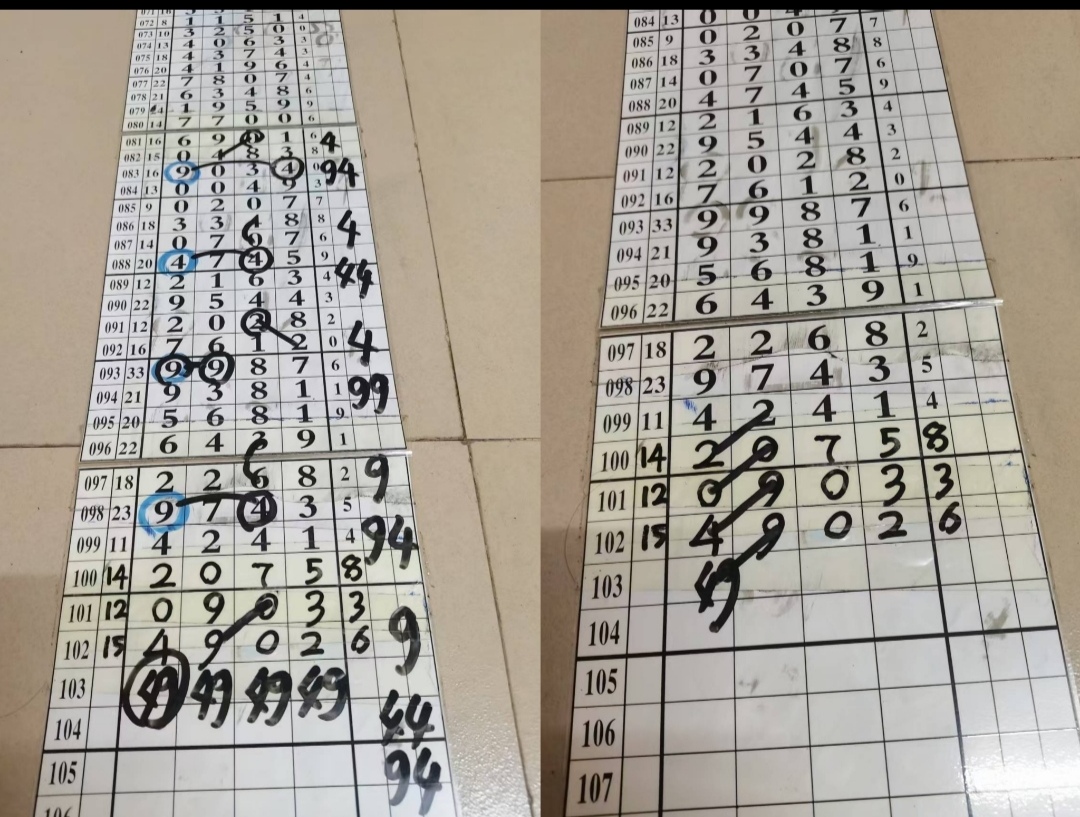 072 8 1 1 5 1 4
073 10 3 2 5 0 0
074 13 4 0 6 3 3
075 18 4 3 7 4 3
076 20 4 1 9 6 4
077 22 7 8 0 7 4
078 21 6 3 4 8 6
079 24 1 9 5 9 9
080 14 7 7 0 0 6
081 16 6 9 0 1 6 4
082 15 0 4 8 3 8
083 16 9 0 3 4 0 94
084 13 0 0 4 9 3
085 9 0 2 0 7 7
086 18 3 3 4 8 8 4
087 14 0 7 0 7 6
088 20 4 7 4 5 9 44
089 12 2 1 6 3 4
090 22 9 5 4 4 3
091 12 2 0 2 8 2
092 16 7 6 1 2 0 4
093 33 9 9 8 7 6
094 21 9 3 8 1 1 99
095 20 5 6 8 1 9
096 22 6 4 3 9 1
097 18 2 2 6 8 2 9
098 23 9 7 4 3 5
099 11 4 2 4 1 4 94
100 14 2 0 7 5 8
101 12 0 9 0 3 3
102 15 4 9 0 2 6 9
103 49 49 49 49
104 44
105 94
084 13 0 0 4
085 9 0 2 0 7 7
086 18 3 3 4 8 8
087 14 0 7 0 7 6
088 20 4 7 4 5 9
089 12 2 1 6 3 4
090 22 9 5 4 4 3
091 12 2 0 2 8 2
092 16 7 6 1 2 0
093 33 9 9 8 7 6
094 21 9 3 8 1 1
095 20 5 6 8 1 9
096 22 6 4 3 9 1
097 18 2 2 6 8 2
098 23 9 7 4 3 5
099 11 4 2 4 1 4
100 14 2 0 7 5 8
101 12 0 9 0 3 3
102 15 4 9 0 2 6
103 49
104
105
106
107